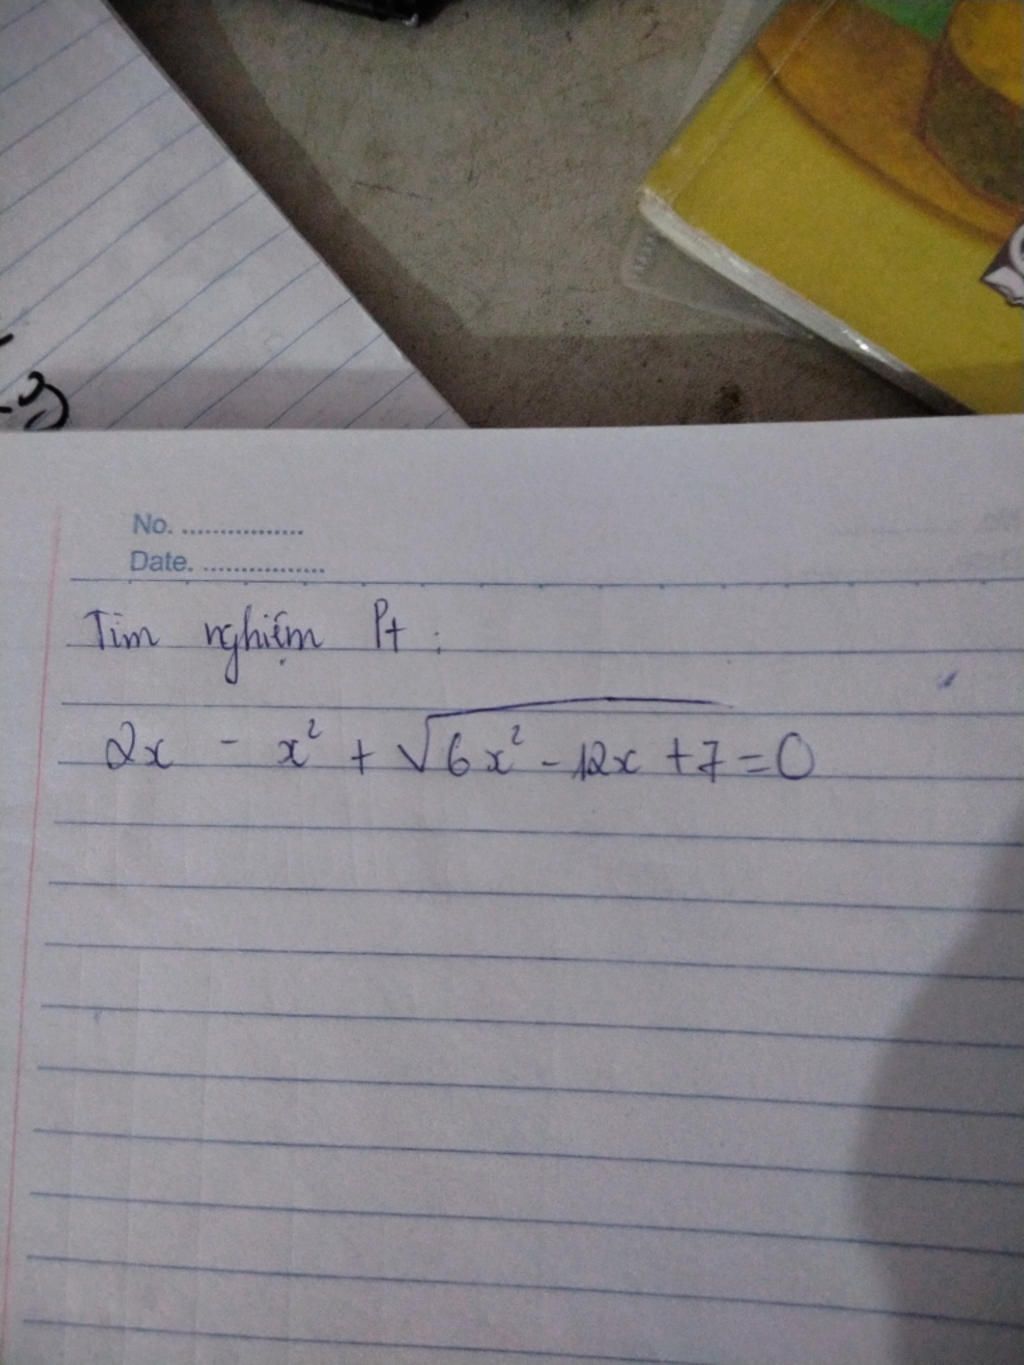 No. ...............
Date. ...............
Tìm nghiệm Pt :
2x - x² + √6x² - 12x + 7 = 0